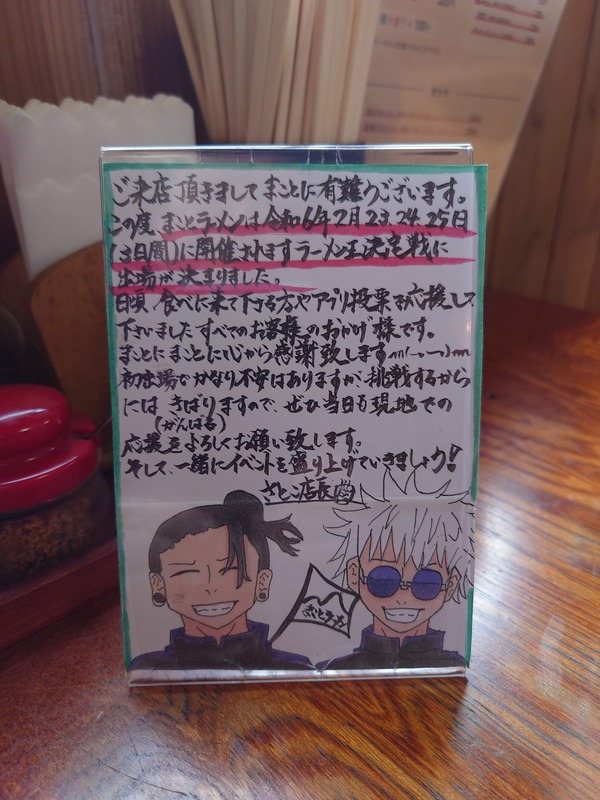 ご来店頂きましてまことに有難うございます。
この度、まことラーメンは令和6年2月23.24.25日
(3日間)に開催されますラーメン王決定戦に
出場が決まりました。
日頃、食べに来て下さる方やアプリ投票で応援して
下さいましたすべてのお客様のおかげ様です。
まことにまことに心から感謝致しますm(-_-)m
初出場でかなり不安はありますが、挑戦するから
には きばりますので、ぜひ当日も現地での
(がんばる)
応援をよろしくお願い致します。
そして、一緒にイベントを盛り上げていきましょう!
さとこ店長
まことラーメン